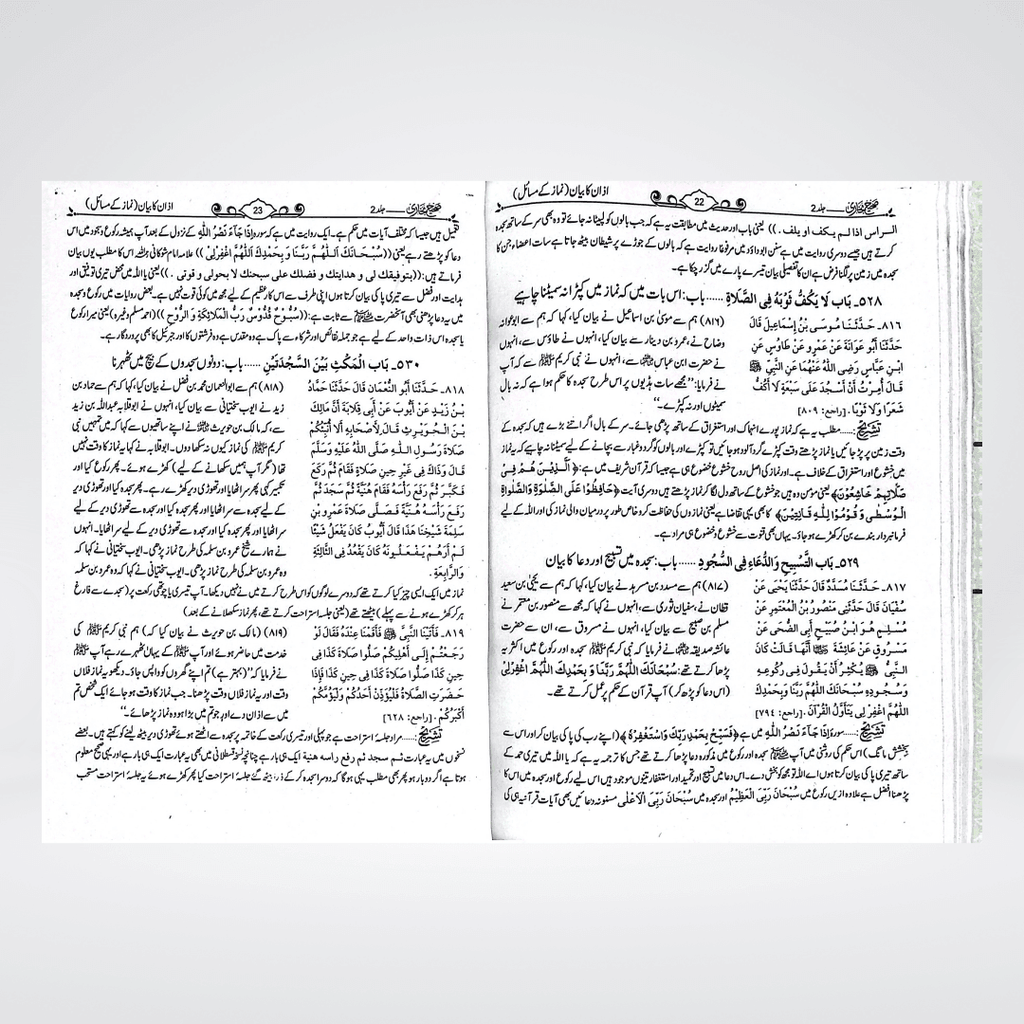 صحیح بخاری ـــــ جلد 2
22
اذان کا بیان (نماز کے مسائل)
الراس اذا لم یکف او یلف.)) یعنی باب اور حدیث میں مطابقت یہ ہے کہ جب بالوں کو لپیٹا نہ جائے تو وہ بھی سر کے ساتھ سجدہ
کرتے ہیں جیسے دوسری روایت میں ہے سنن ابوداؤد میں مرفوعا روایت ہے کہ بالوں کے جوڑے پر شیطان بیٹھ جاتا ہے سات اعضاء جن کا
سجدہ میں زمین پر لگنا فرض ہے ان کا تفصیلی بیان تیسرے پارے میں گزر چکا ہے۔
۵۲۸۔ بَاب لَا يَكُفُّ ثَوْبَهُ فِى الصَّلَاةِ ...... باب: اس بات میں کہ نماز میں کپڑا نہ سمیٹنا چاہیے
۸۱۶۔ حَدَّثَنَا مُوسَى بْنُ إِسْمَاعِيلَ قَالَ
حَدَّثَنَا أَبُو عَوَانَةَ عَنْ عَمْرٍو عَنْ طَاوُسٍ عَنِ
ابْنِ عَبَّاسٍ رَضِىَ اللَّهُ عَنْهُمَا عَنِ النَّبِىِّ ﷺ
قَالَ أُمِرْتُ أَنْ أَسْجُدَ عَلَى سَبْعَةٍ لَا أَكُفُّ
شَعَرًا وَلَا ثَوْبًا. [راجع: ۸۰۹]
(۸۱۶) ہم سے موسیٰ بن اسماعیل نے بیان کیا، کہا کہ ہم سے ابوعوانہ
وضاح نے، عمرو بن دینار سے بیان کیا، انہوں نے طاؤس سے، انہوں
نے حضرت ابن عباس سے، انہوں نے نبی کریم ﷺ سے کہ آپ
نے فرمایا: ’’مجھے سات ہڈیوں پر اس طرح سجدہ کا حکم ہوا ہے کہ نہ بال
سمیٹوں اور نہ کپڑے۔‘‘
تشریح: ..... مطلب یہ ہے کہ نماز پورے انہماک اور استغراق کے ساتھ پڑھی جائے۔ سر کے بال اگر اتنے بڑے ہیں کہ سجدہ کے
وقت زمین پر پڑ جائیں یا نماز پڑھتے وقت کپڑے گرد آلود ہو جائیں تو کپڑے اور بالوں کو گرد و غبار سے بچانے کے لیے سمیٹنا نہ چاہیے کہ یہ نماز
میں خشوع اور استغراق کے خلاف ہے۔ اور نماز کی اصل روح خشوع خضوع ہی ہے جیسا کہ قرآن شریف میں ہے: ﴿الَّذِيْنَ هُمْ فِىْ
صَلَاتِهِمْ خَاشِعُوْنَ﴾ یعنی مومن وہ ہیں جو خشوع کے ساتھ دل لگا کر نماز پڑھتے ہیں دوسری آیت ﴿حَافِظُوْا عَلَى الصَّلٰوةِ وَالصَّلٰوةِ
الْوُسْطٰى وَقُوْمُوْا لِلّٰهِ قَانِتِيْنَ﴾ کا بھی یہی تقاضا ہے یعنی نمازوں کی حفاظت کرو خاص طور پر درمیان والی نماز کی اور اللہ کے لیے
فرمانبردار بندے بن کر کھڑے ہو جاؤ۔ یہاں بھی قنوت سے خشوع و خضوع ہی مراد ہے۔
۵۲۹۔ بَاب التَّسْبِيحِ وَالدُّعَاءِ فِى السُّجُودِ ...... باب: سجدہ میں تسبیح اور دعا کا بیان
۸۱۷۔ حَدَّثَنَا مُسَدَّدٌ قَالَ حَدَّثَنَا يَحْيَى عَنْ
سُفْيَانَ قَالَ حَدَّثَنِى مَنْصُورُ بْنُ الْمُعْتَمِرِ عَنْ
مُسْلِمٍ هُوَ ابْنُ صُبَيْحٍ أَبِى الضُّحَى عَنْ
مَسْرُوقٍ عَنْ عَائِشَةَ أَنَّهَا قَالَتْ كَانَ
النَّبِىُّ ﷺ يُكْثِرُ أَنْ يَقُولَ فِى رُكُوعِهِ
وَسُجُودِهِ سُبْحَانَكَ اللَّهُمَّ رَبَّنَا وَبِحَمْدِكَ
اللَّهُمَّ اغْفِرْ لِى يَتَأَوَّلُ الْقُرْآنَ. [راجع: ۷۹۴]
(۸۱۷) ہم سے مسدد بن مسرہد نے بیان کیا، کہا کہ ہم سے یحییٰ بن سعید
قطان نے، سفیان ثوری سے، انہوں نے کہا کہ مجھ سے منصور بن معتمر نے
مسلم بن صبیح سے بیان کیا، انہوں نے مسروق سے، ان سے حضرت
عائشہ صدیقہ نے فرمایا کہ نبی کریم ﷺ سجدہ اور رکوع میں اکثر یہ
پڑھا کرتے تھے: سُبْحَانَكَ اللَّهُمَّ رَبَّنَا وَبِحَمْدِكَ اللَّهُمَّ اغْفِرْلِىْ
(اس دعا کو پڑھ کر) آپ قرآن کے حکم پر عمل کرتے تھے۔
تشریح: ..... سورۂ اِذَا جَآءَ نَصْرُ اللّٰهِ میں ہے ﴿فَسَبِّحْ بِحَمْدِ رَبِّكَ وَاسْتَغْفِرْهُ﴾ (اپنے رب کی پاکی بیان کر اور اس سے
بخشش مانگ) اس حکم کی روشنی میں آپ ﷺ سجدہ اور رکوع میں مذکورہ دعا پڑھا کرتے تھے جس کا ترجمہ یہ ہے کہ یا اللہ میں تیری حمد کے
ساتھ تیری پاکی بیان کرتا ہوں اے اللہ تو مجھ کو بخش دے۔ اس دعا میں تسبیح اور تحمید اور استغفار تینوں موجود ہیں اس لیے رکوع اور سجدہ میں اس کا
پڑھنا افضل ہے علاوہ ازیں رکوع میں سُبْحَانَ رَبِّىَ الْعَظِيْمُ اور سجدہ میں سُبْحَانَ رَبِّىَ الْاَعْلٰى مسنونہ دعائیں بھی آیات قرآنیہ ہی کی
صحیح بخاری ـــــ جلد 2
23
اذان کا بیان (نماز کے مسائل)
تعمیل ہیں جیسا کہ مختلف آیات میں حکم ہے۔ ایک روایت میں ہے کہ سورہ اِذَا جَآءَ نَصْرُ اللّٰهِ کے نزول کے بعد آپ ہمیشہ رکوع و سجود میں اس
دعا کو پڑھتے رہے یعنی ((سُبْحَانَكَ اللّٰهُمَّ رَبَّنَا وَبِحَمْدِكَ اللّٰهُمَّ اغْفِرْلِىْ)) علامہ امام شوکانی اس کا مطلب یوں بیان
فرماتے ہیں: ((بتوفیقك لى و هدایتك و فضلك على سبحتك لا بحولى و قوتى.)) یعنی یا اللہ میں محض تیری توفیق اور
ہدایت اور فضل سے تیری پاکی بیان کرتا ہوں اپنی طرف سے اس کارعظیم کے لیے مجھ میں کوئی قوت نہیں ہے۔ بعض روایات میں رکوع و سجدہ
میں یہ دعا پڑھنی بھی آنحضرت ﷺ سے ثابت ہے: ((سُبُّوْحٌ قُدُّوْسٌ رَبُّ الْمَلَائِكَةِ وَ الرُّوْحِ)) (احمد مسلم وغیرہ) یعنی میرا رکوع
یا سجدہ اس ذات واحد کے لیے ہے جو جملہ نقائص اور شرکاء سے پاک ہے وہ مقدس ہے وہ فرشتوں کا اور جبرئیل کا بھی پروردگار ہے۔
۵۳۰۔ بَاب الْمَكْثِ بَيْنَ السَّجْدَتَيْنِ ...... باب: دونوں سجدوں کے بیچ میں ٹھہرنا
۸۱۸۔ حَدَّثَنَا أَبُو النُّعْمَانِ قَالَ حَدَّثَنَا حَمَّادُ
بْنُ زَيْدٍ عَنْ أَيُّوبَ عَنْ أَبِى قِلَابَةَ أَنَّ مَالِكَ
بْنَ الْحُوَيْرِثِ قَالَ لِأَصْحَابِهِ أَلَا أُنَبِّئُكُمْ
صَلَاةَ رَسُولِ اللهِ صَلَّى اللهُ عَلَيْهِ وَسَلَّمَ
قَالَ وَذَاكَ فِى غَيْرِ حِينِ صَلَاةٍ فَقَامَ ثُمَّ رَكَعَ
فَكَبَّرَ ثُمَّ رَفَعَ رَأْسَهُ فَقَامَ هُنَيَّةً ثُمَّ سَجَدَ ثُمَّ
رَفَعَ رَأْسَهُ هُنَيَّةً فَصَلَّى صَلَاةَ عَمْرِو بْنِ
سَلِمَةَ شَيْخِنَا هَذَا قَالَ أَيُّوبُ كَانَ يَفْعَلُ شَيْئًا
لَمْ أَرَهُمْ يَفْعَلُونَهُ كَانَ يَقْعُدُ فِى الثَّالِثَةِ
وَالرَّابِعَةِ.
(۸۱۸) ہم سے ابوالنعمان محمد بن فضل نے بیان کیا، کہا کہ ہم سے حماد بن
زید نے ایوب سختیانی سے بیان کیا، انہوں نے ابوقلابہ عبداللہ بن زید
سے، کہ مالک بن حویرث نے اپنے ساتھیوں سے کہا کہ میں تمہیں نبی
کریم ﷺ کی نماز کیوں نہ سکھا دوں۔ ابوقلابہ نے کہا یہ نماز کا وقت نہیں
تھا (مگر آپ ہمیں سکھانے کے لیے) کھڑے ہوئے۔ پھر رکوع کیا اور
تکبیر کہی پھر سر اٹھایا اور تھوڑی دیر کھڑے رہے۔ پھر سجدہ کیا اور تھوڑی دیر
کے لیے سجدہ سے سر اٹھایا اور پھر سجدہ کیا اور سجدہ سے تھوڑی دیر کے لیے
سر اٹھایا اور پھر سجدہ کیا اور سجدہ سے تھوڑی دیر کے لیے سر اٹھایا۔ انہوں
نے ہمارے شیخ عمرو بن سلمہ کی طرح نماز پڑھی۔ ایوب سختیانی نے کہا کہ
وہ عمرو بن سلمہ کی طرح نماز پڑھی۔ ایوب سختیانی نے کہا کہ وہ عمرو بن سلمہ
نماز میں ایک ایسی چیز کیا کرتے تھے کہ دوسرے لوگوں کو اس طرح کرتے میں نے نہیں دیکھا۔ آپ تیسری یا چوتھی رکعت پر (سجدہ سے فارغ
ہو کر کھڑے ہونے سے پہلے) بیٹھتے تھے (یعنی جلسہ استراحت کرتے تھے، پھر نماز سکھلانے کے بعد)
۸۱۹۔ فَأَتَيْنَا النَّبِىَّ ﷺ فَأَقَمْنَا عِنْدَهُ فَقَالَ لَوْ
رَجَعْتُمْ إِلَى أَهْلِيكُمْ صَلُّوا صَلَاةَ كَذَا فِى
حِينِ كَذَا صَلُّوا صَلَاةَ كَذَا فِى حِينِ كَذَا فَإِذَا
حَضَرَتِ الصَّلَاةُ فَلْيُؤَذِّنْ أَحَدُكُمْ وَلْيَؤُمَّكُمْ
أَكْبَرُكُمْ. [راجع: ۶۲۸]
(۸۱۹) (مالک بن حویرث نے بیان کیا کہ) ہم نبی کریم ﷺ کی
خدمت میں حاضر ہوئے اور آپ ﷺ کے یہاں ٹھہرے رہے آپ ﷺ
نے فرمایا کہ ’’(بہتر ہے) تم اپنے گھروں کو واپس جاؤ۔ دیکھو یہ نماز فلاں
وقت اور یہ نماز فلاں وقت پڑھنا۔ جب نماز کا وقت ہو جائے ایک شخص تم
میں سے اذان دے اور جو تم میں بڑا ہو وہ نماز پڑھائے۔‘‘
تشریح: ..... مراد جلسۂ استراحت ہے جو پہلی اور تیسری رکعت کے خاتمہ پر سجدہ سے اٹھتے ہوئے تھوڑی دیر بیٹھ لینے کو کہتے ہیں۔ بعضے
نسخوں میں یہ عبارت ثم سجد ثم رفع راسه هنية ایک ہی بار ہے چنانچہ نسخہ قسطلانی میں بھی یہ عبارت ایک ہی بار ہے اور یہی صحیح معلوم
ہوتا ہے اگر دوبارہ ہو پھر بھی مطلب یہی ہوگا کہ دوسرا سجدہ کر کے ذرا بیٹھ گئے جلسۂ استراحت کیا پھر کھڑے ہوئے یہ جلسۂ استراحت مستحب